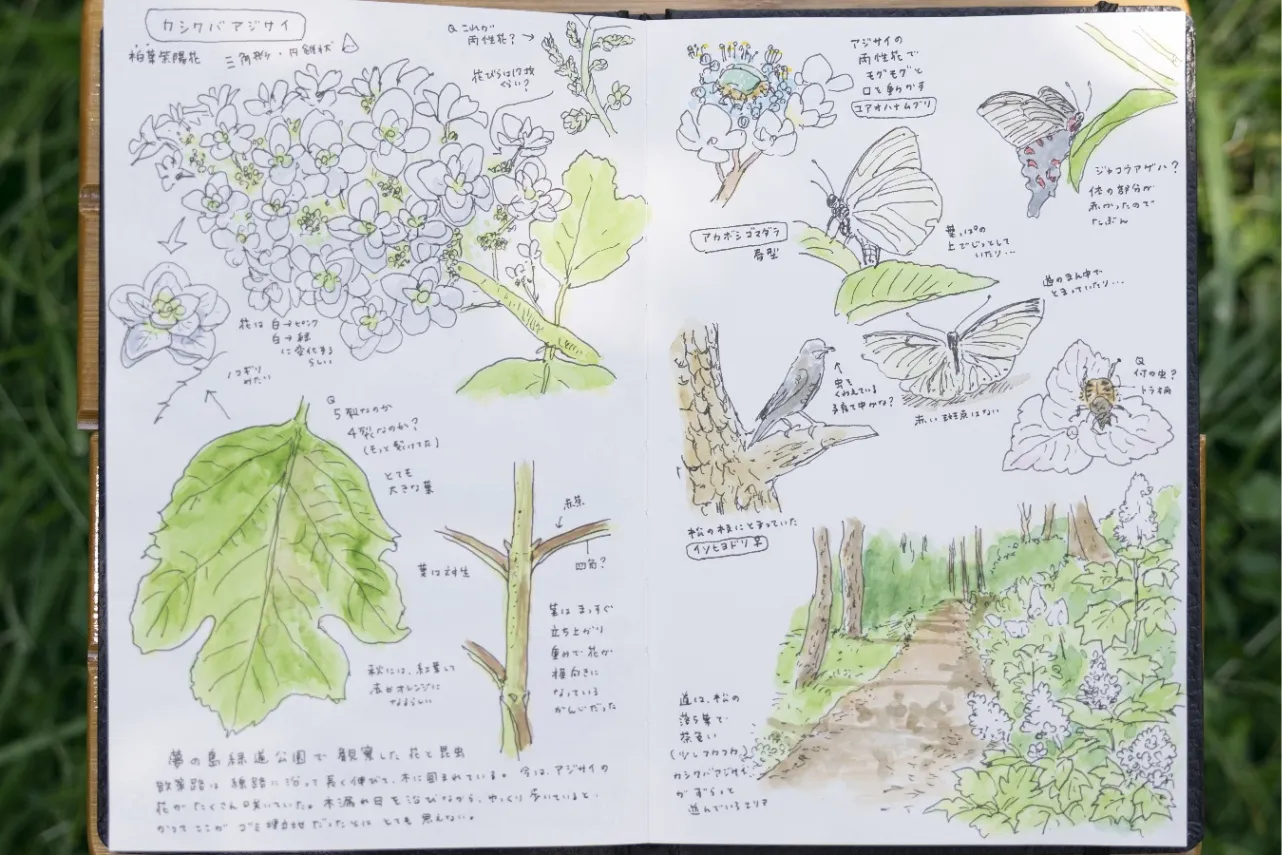 カシワバアジサイ
柏葉紫陽花
三角形・円錐状
Q これが
両性花？→
花びらは17枚
くらい？
花は 白→ピンク
白→緑
に変化する
らしい
ノコギリ
みたい
Q
5裂なのか
4裂なのか？
(もっと裂けてた)
とても
大きな葉
赤茶
四角？
葉は対生
茎はまっすぐ
立ち上がり
重みで花が
横向きに
なっている
かんじだった
秋には、紅葉して
赤やオレンジに
なるらしい
夢の島緑道公園で観察した花と昆虫
散策路は線路に沿って長く伸びて、木に囲まれている。今は、アジサイの
花がたくさん咲いていた。木漏れ日を浴びながら、ゆっくり歩いていると、
かつてここがゴミ埋立地だったとは とても思えない。
アジサイの
両性花で
モグモグと
口を動かす
コアオハナムグリ
ジャコウアゲハ？
体の部分が
赤かったので
たぶん
アカボシゴマダラ
春型
葉っぱの
上でじっとして
いたり…
道のまん中で
とまっていたり…
赤い斑点はない
↑
虫を
くわえている
子育て中かな？
Q
何の虫？
トラ柄
松の枝にとまっていた
イソヒヨドリ♀
道は、松の
落ち葉で
茶色い
(少しフカフカ)
カシワバアジサイ
がずらっと
並んでいるエリア